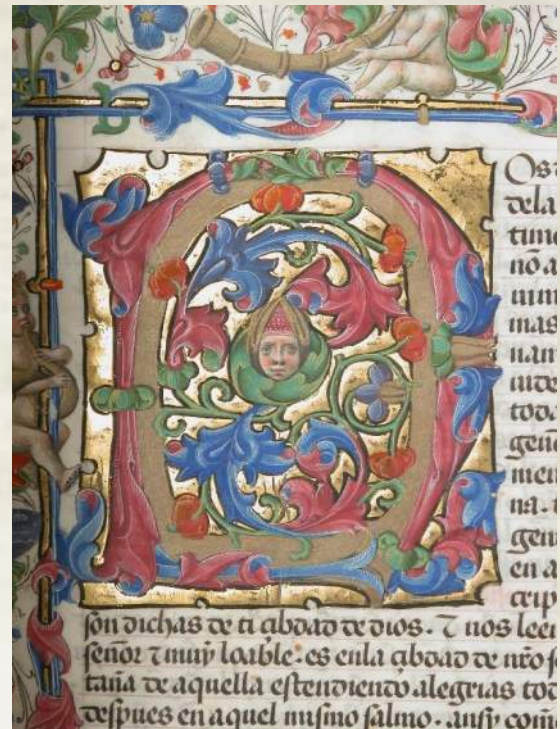 Os
dela
no a
mas
nan
toda
gene
na.
en a
son dichas de ti cibdad de dios. ⁊ nos leer
señor ⁊ muy loable. es enla cibdad de nro s
taña de aquella estendiendo alegrias tod
despues en aquel mismo salmo. ansy com